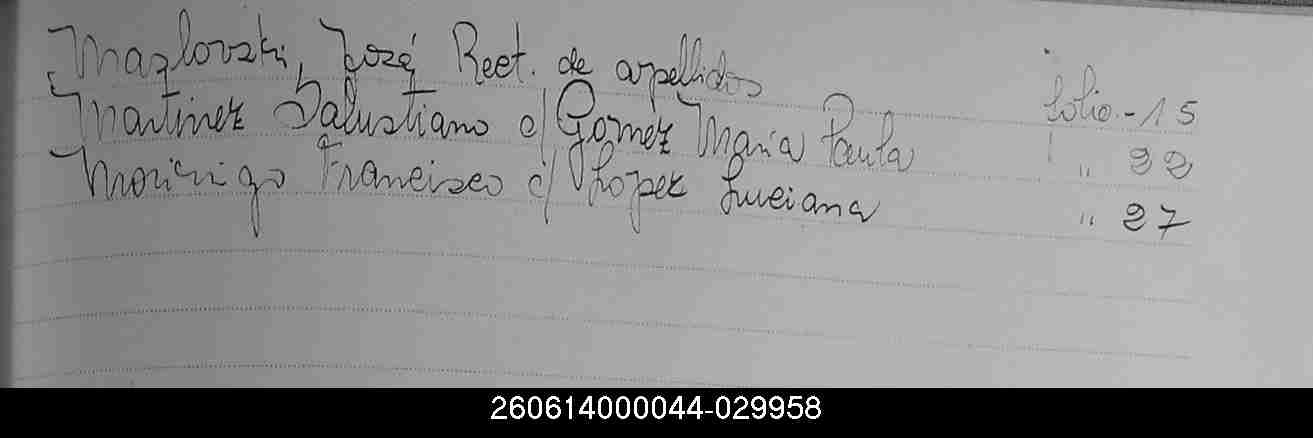 Mazlovski, José Rect. de apellidos folio - 15
Martinez Salustiano c/ Gomez Maria Paula " 22
Morinigo Francisco c/ Lopez Luciana " 27
260614000044-029958